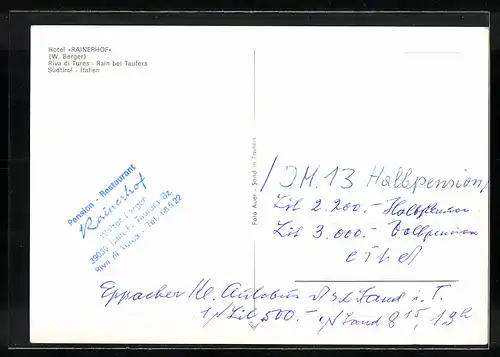 Hotel «RAINERHOF»
(W. Berger)
Riva di Tures - Rain bei Taufers
Südtirol - Italien
Pension - Restaurant
Rainerhof
Berger
39030 Rain b. Taufers Bz.
Riva di Tures - Tel.
Foto Auer - Sand in Taufers
DM. 13 Halbpension
Lit 2.200.- Halbpension
Lit 3.000.- Vollpension
Eppacher Kl. Autobus Sand i. T.
Lit 500.- Sand 8 15, 13h